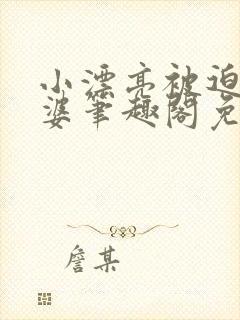 小漂亮被迫
婆笔趣阁免
詹某